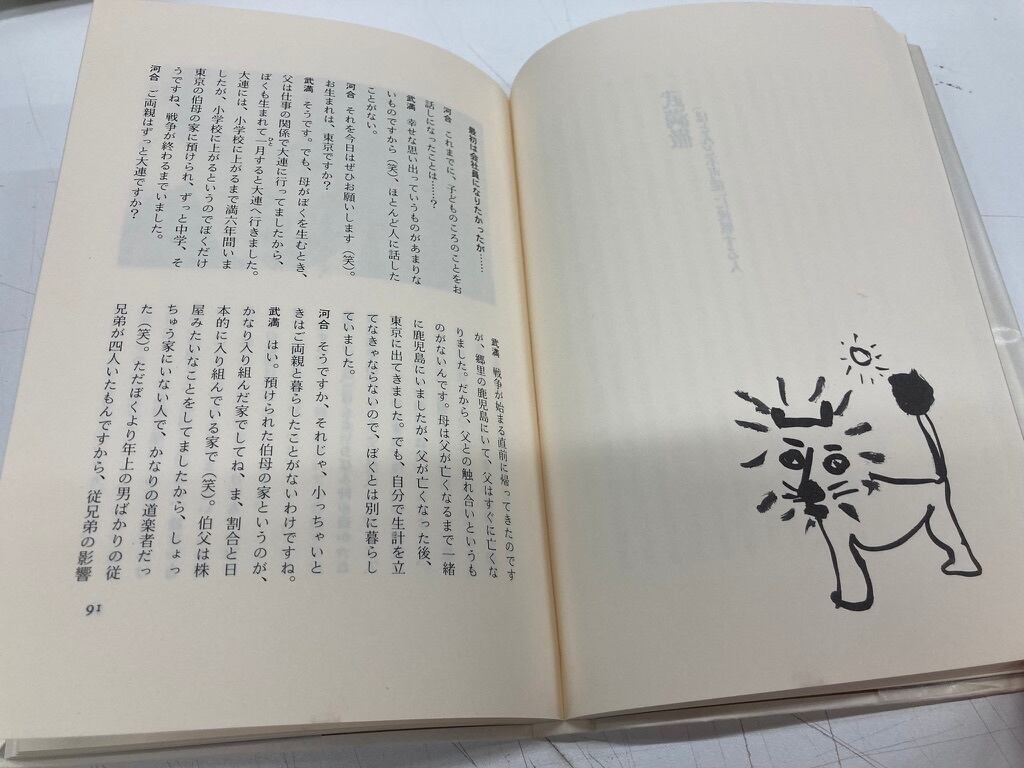 最初は会社員になりたかったが……
河合 これまでに、子どものころのことをお
話しになったことは……？
武満 幸せな思い出っていうものがあまりな
いものですから（笑）、ほとんど人に話した
ことがない。
河合 それを今日はぜひお願いします（笑）。
お生まれは、東京ですか？
武満 そうです。でも、母がぼくを生むとき、
父は仕事の関係で大連に行ってましたから、
ぼくも生まれて一月すると大連へ行きました。
大連には、小学校に上がるまで満六年間いま
したが、小学校に上がるというのでぼくだけ
東京の伯母の家に預けられ、ずっと中学、そ
うですね、戦争が終わるまでいました。
河合 ご両親はずっと大連ですか？
武満 戦争が始まる直前に帰ってきたのです
が、郷里の鹿児島にいて、父はすぐに亡くな
りました。だから、父との触れ合いというも
のがないんです。母は父が亡くなるまで一緒
に鹿児島にいましたが、父が亡くなった後、
東京に出てきました。でも、自分で生計を立
てなきゃならないので、ぼくとは別に暮らし
ていました。
河合 そうですか、それじゃ、小っちゃいと
きはご両親と暮らしたことがないわけですね。
武満 はい。預けられた伯母の家というのが、
かなり入り組んだ家でしてね、ま、割合と日
本的に入り組んでいる家で（笑）。伯父は株
屋みたいなことをしてましたから、しょっ
ちゅう家にいない人で、かなりの道楽者だっ
た（笑）。ただぼくより年上の男ばかりの従
兄弟が四人いたもんですから、従兄弟の影響
91
武満徹